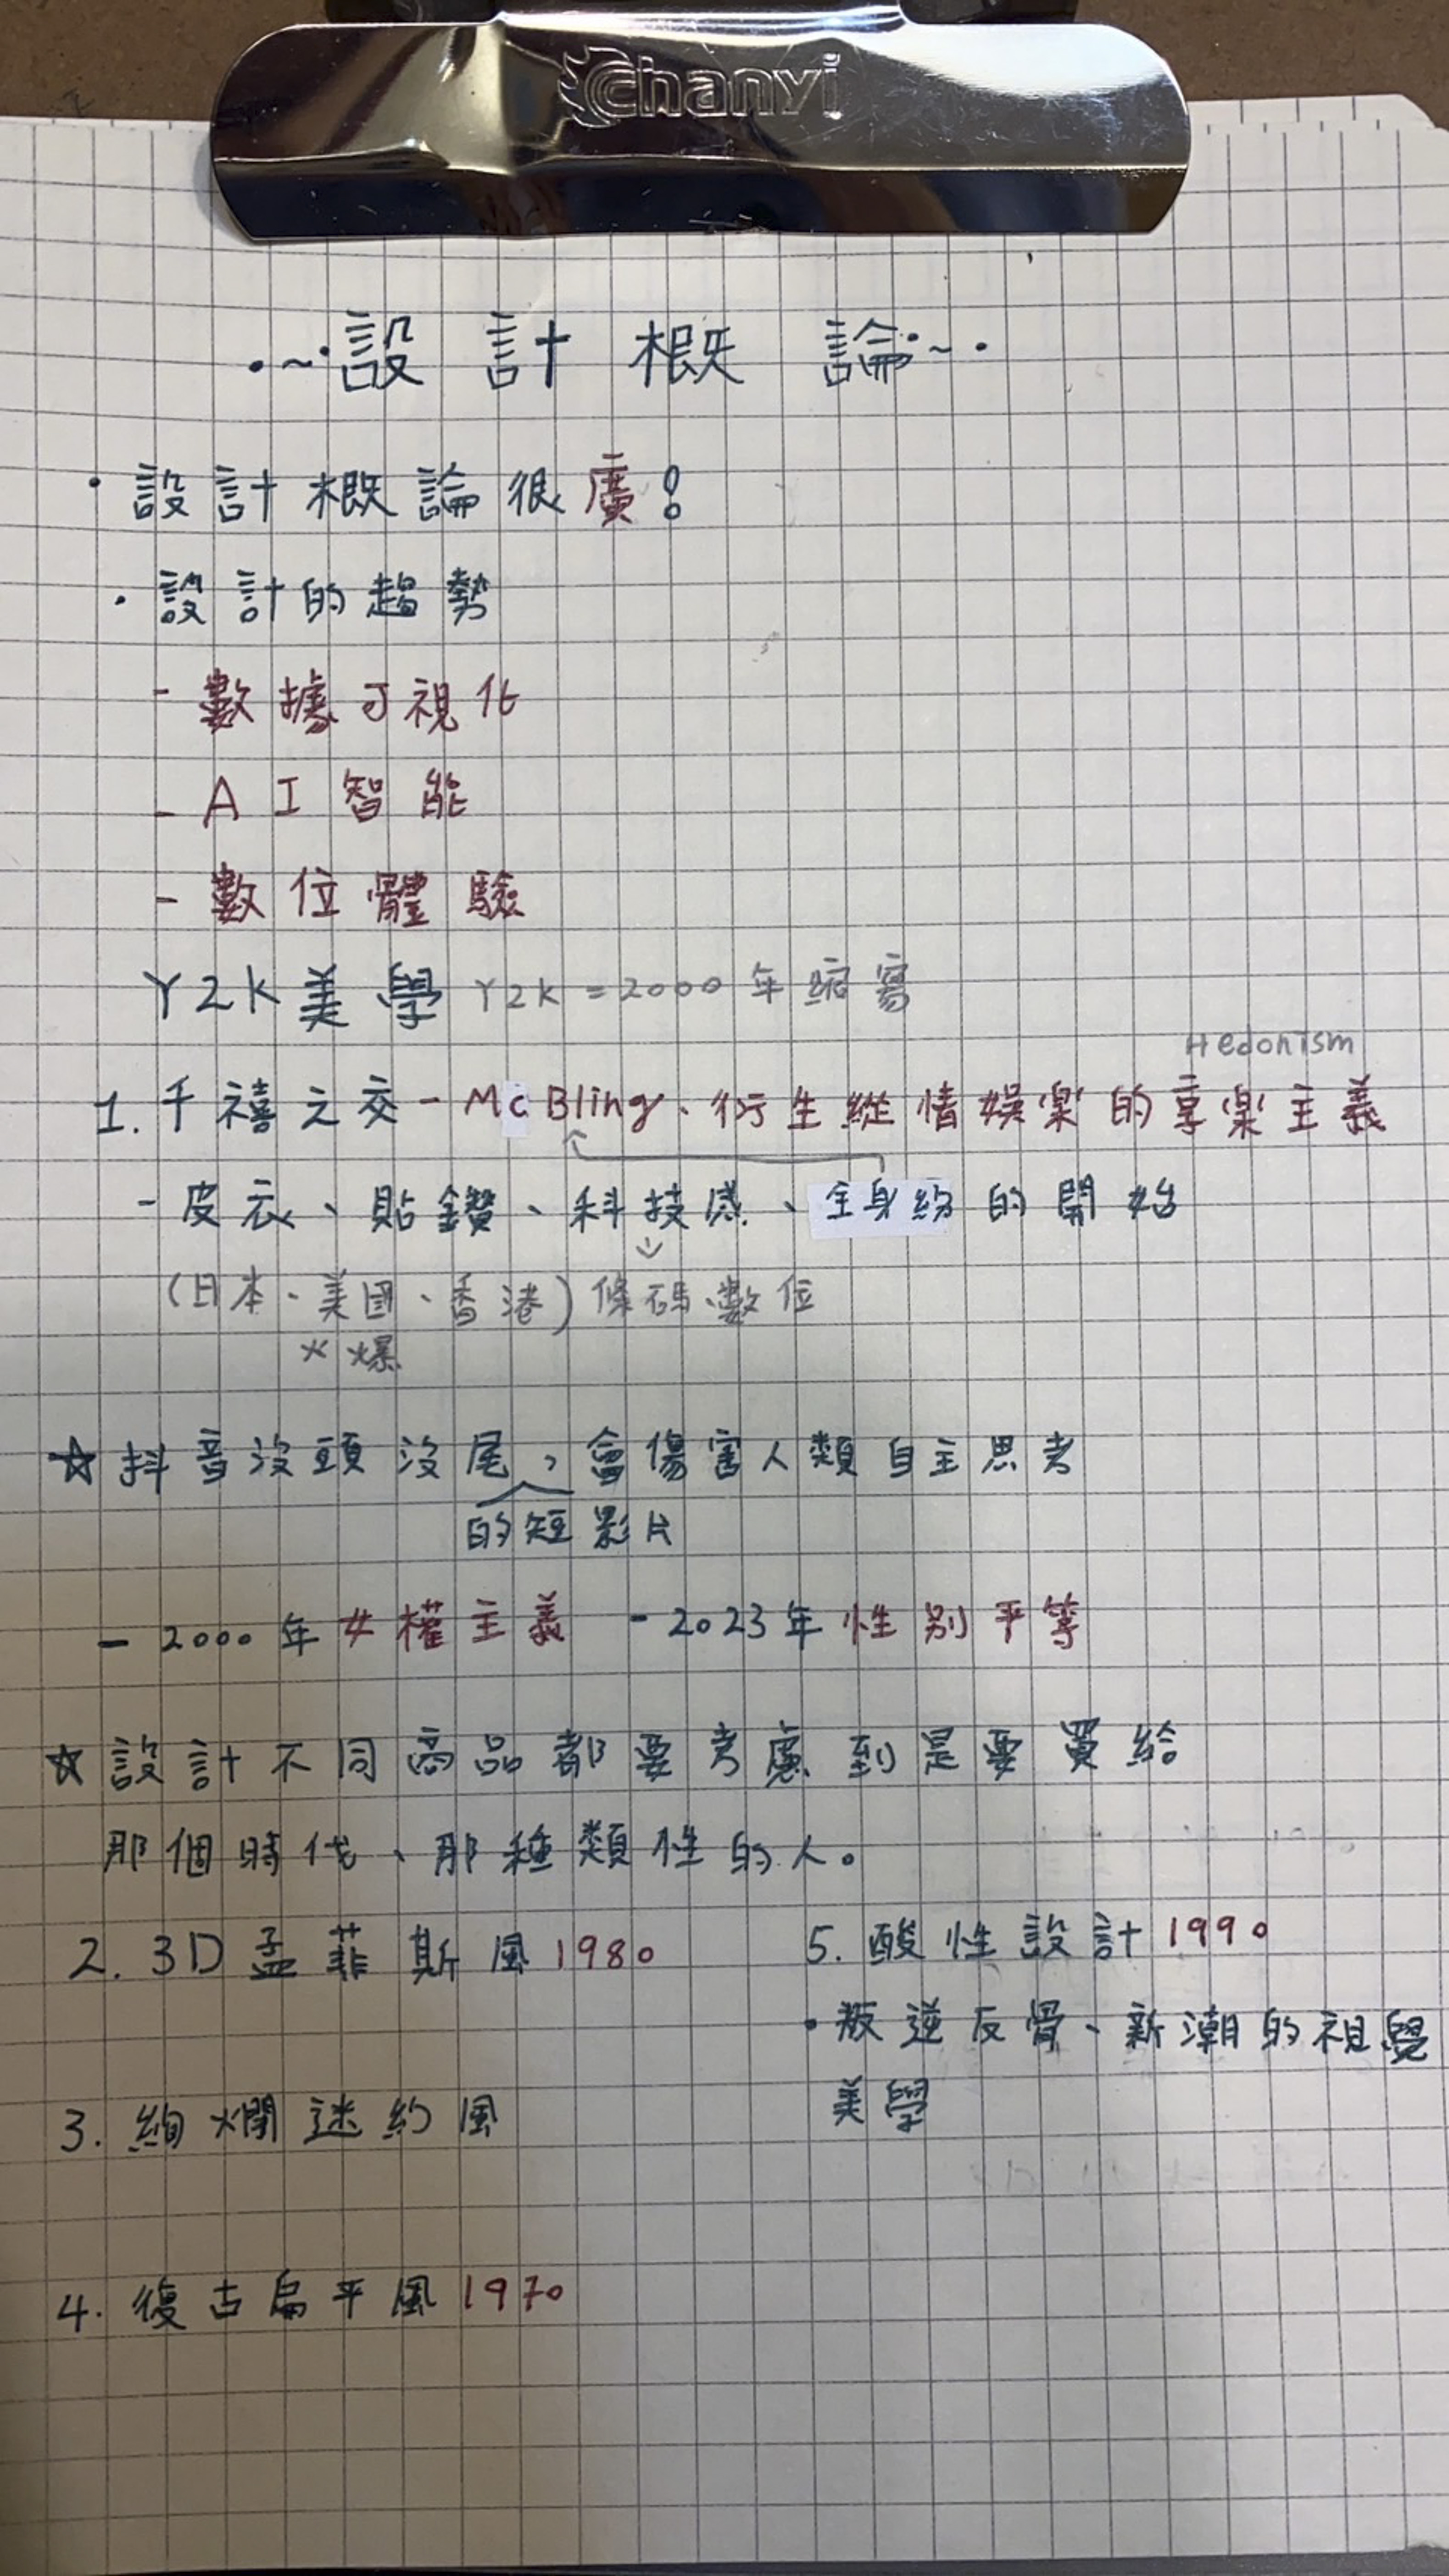 chanyi
•~•設計概論•~•
•設計概論很廣!
•設計的趨勢
- 數據可視化
- AI智能
- 數位體驗
Y2K美學 Y2K=2000年縮寫
Hedonism
1. 千禧之交-McBling、衍生縱情娛樂的享樂主義
- 皮衣、貼鑽、科技感、全身粉的開始
(日本、美國、香港)條碼、數位
火爆
☆抖音沒頭沒尾,會傷害人類自主思考
的短影片
- 2000年女權主義 - 2023年性別平等
☆設計不同商品都要考慮到是要買給
那個時代、那種類性的人。
2. 3D孟菲斯風1980
5. 酸性設計1990
•叛逆反骨、新潮的視覺
美學
3. 絢爛迷約風
4. 復古扁平風1970